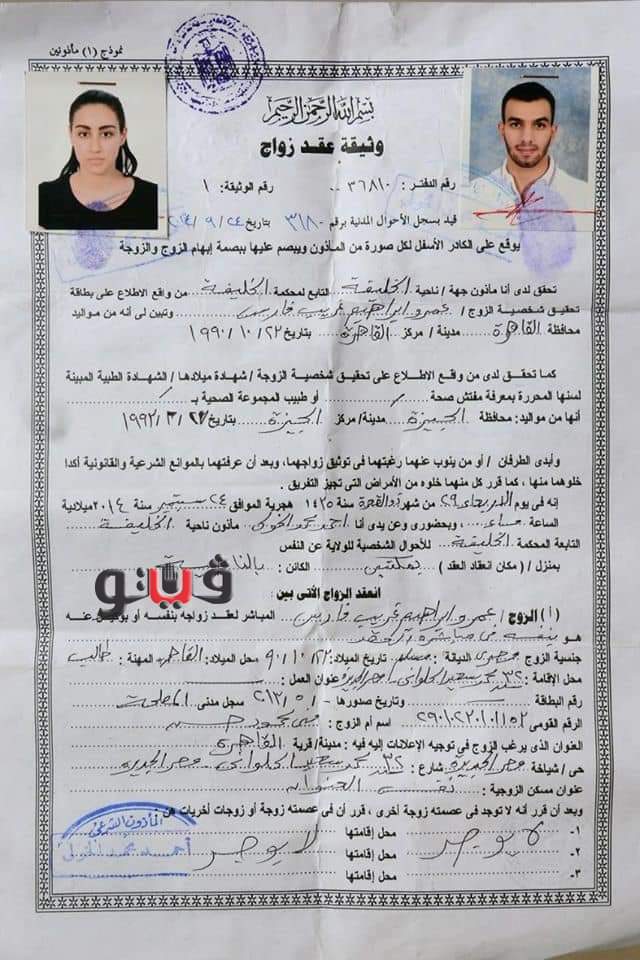 نموذج (١) مأذونين
بسم الله الرحمن الرحيم
وثيقة عقد زواج
رقم الدفتر : ٣٦٨١٠ رقم الوثيقة : ١
قيد بسجل الأحوال المدنية برقم ٣٦٨٠ بتاريخ ٢٤ / ٩ / ٢٠١٤
يوقع على الكادر الأسفل لكل صورة من المأذون ويبصم عليها ببصمة إبهام الزوج والزوجة
تحقق لدى أنا مأذون جهة / ناحية الخليفة التابع لمحكمة الخليفة من واقع الاطلاع على بطاقة
تحقيق شخصية الزوج / عمرو ابراهيم غريب فارس وتبين لى أنه من مواليد
محافظة القاهرة مدينة / مركز القاهرة بتاريخ ٢٢ / ١٠ / ١٩٩٠
كما تحقق لدى من واقع الاطلاع على تحقيق شخصية الزوجة / شهادة ميلادها / الشهادة الطبية المبينة
لسنها المحررة بمعرفة مفتش صحة أو طبيب المجموعة الصحية بـ
أنها من مواليد : محافظة الجيزة مدينة / مركز الجيزة بتاريخ ١٩٩٢
وأبدى الطرفان / أو من ينوب عنهما رغبتهما فى توثيق زواجهما، وبعد أن عرفتهما بالموانع الشرعية والقانونية أكدا
خلوهما منها ، كما قرر كل منهما خلوه من الأمراض التى تجيز التفريق .
إنه فى يوم الاربعاء ٢٩ من شهر ذو القعدة سنة ١٤٣٥ هجرية الموافق ٢٤ سبتمبر سنة ٢٠١٤ ميلادية
الساعة مساء ، وبحضورى وعن يدى أنا احمد محمد الخولى مأذون ناحية الخليفة
التابعة لمحكمة الخليفة للأحوال الشخصية للولاية عن النفس
بمنزل / ( مكان انعقاد العقد ) بمكتبى الكائن :
ڤيتو
انعقد الزواج الآتى بين :
( أ ) الزوج / عمرو ابراهيم غريب فارس المباشر لعقد زواجه بنفسه أو بوكيل عنه
هو بنفسه
جنسية الزوج مصرى الديانة : مسلم تاريخ الميلاد : ٢٢ / ١٠ / ٩٠ محل الميلاد : القاهرة المهنة : طالب
محل الإقامة : ٣٢ محمد سعيد الحلوانى مصر الجديدة عنوان العمل :
رقم البطاقة وتاريخ صدورها ٢٠١٣ سجل مدنى
الرقم القومى ٢٩٠١٠٢٢٠١٠١١٥٢ اسم أم الزوج : منى محمود حسن
العنوان الذى يرغب الزوج فى توجيه الإعلانات إليه فيه : مدينة / قرية القاهرة
حى / شياخة مصر الجديدة شارع : ٣٢ محمد سعيد الحلوانى مصر الجديدة
عنوان مسكن الزوجية : نفس العنوان
وبعد أن قرر أنه لا توجد فى عصمته زوجة أخرى ، قرر أن فى عصمته زوجة أو زوجات أخريات هن :
١ - لا يوجد محل إقامتها
٢ - محل إقامتها لا يوجد
٣ - محل إقامتها
المأذون الشرعى
أحمد محمد الخولى